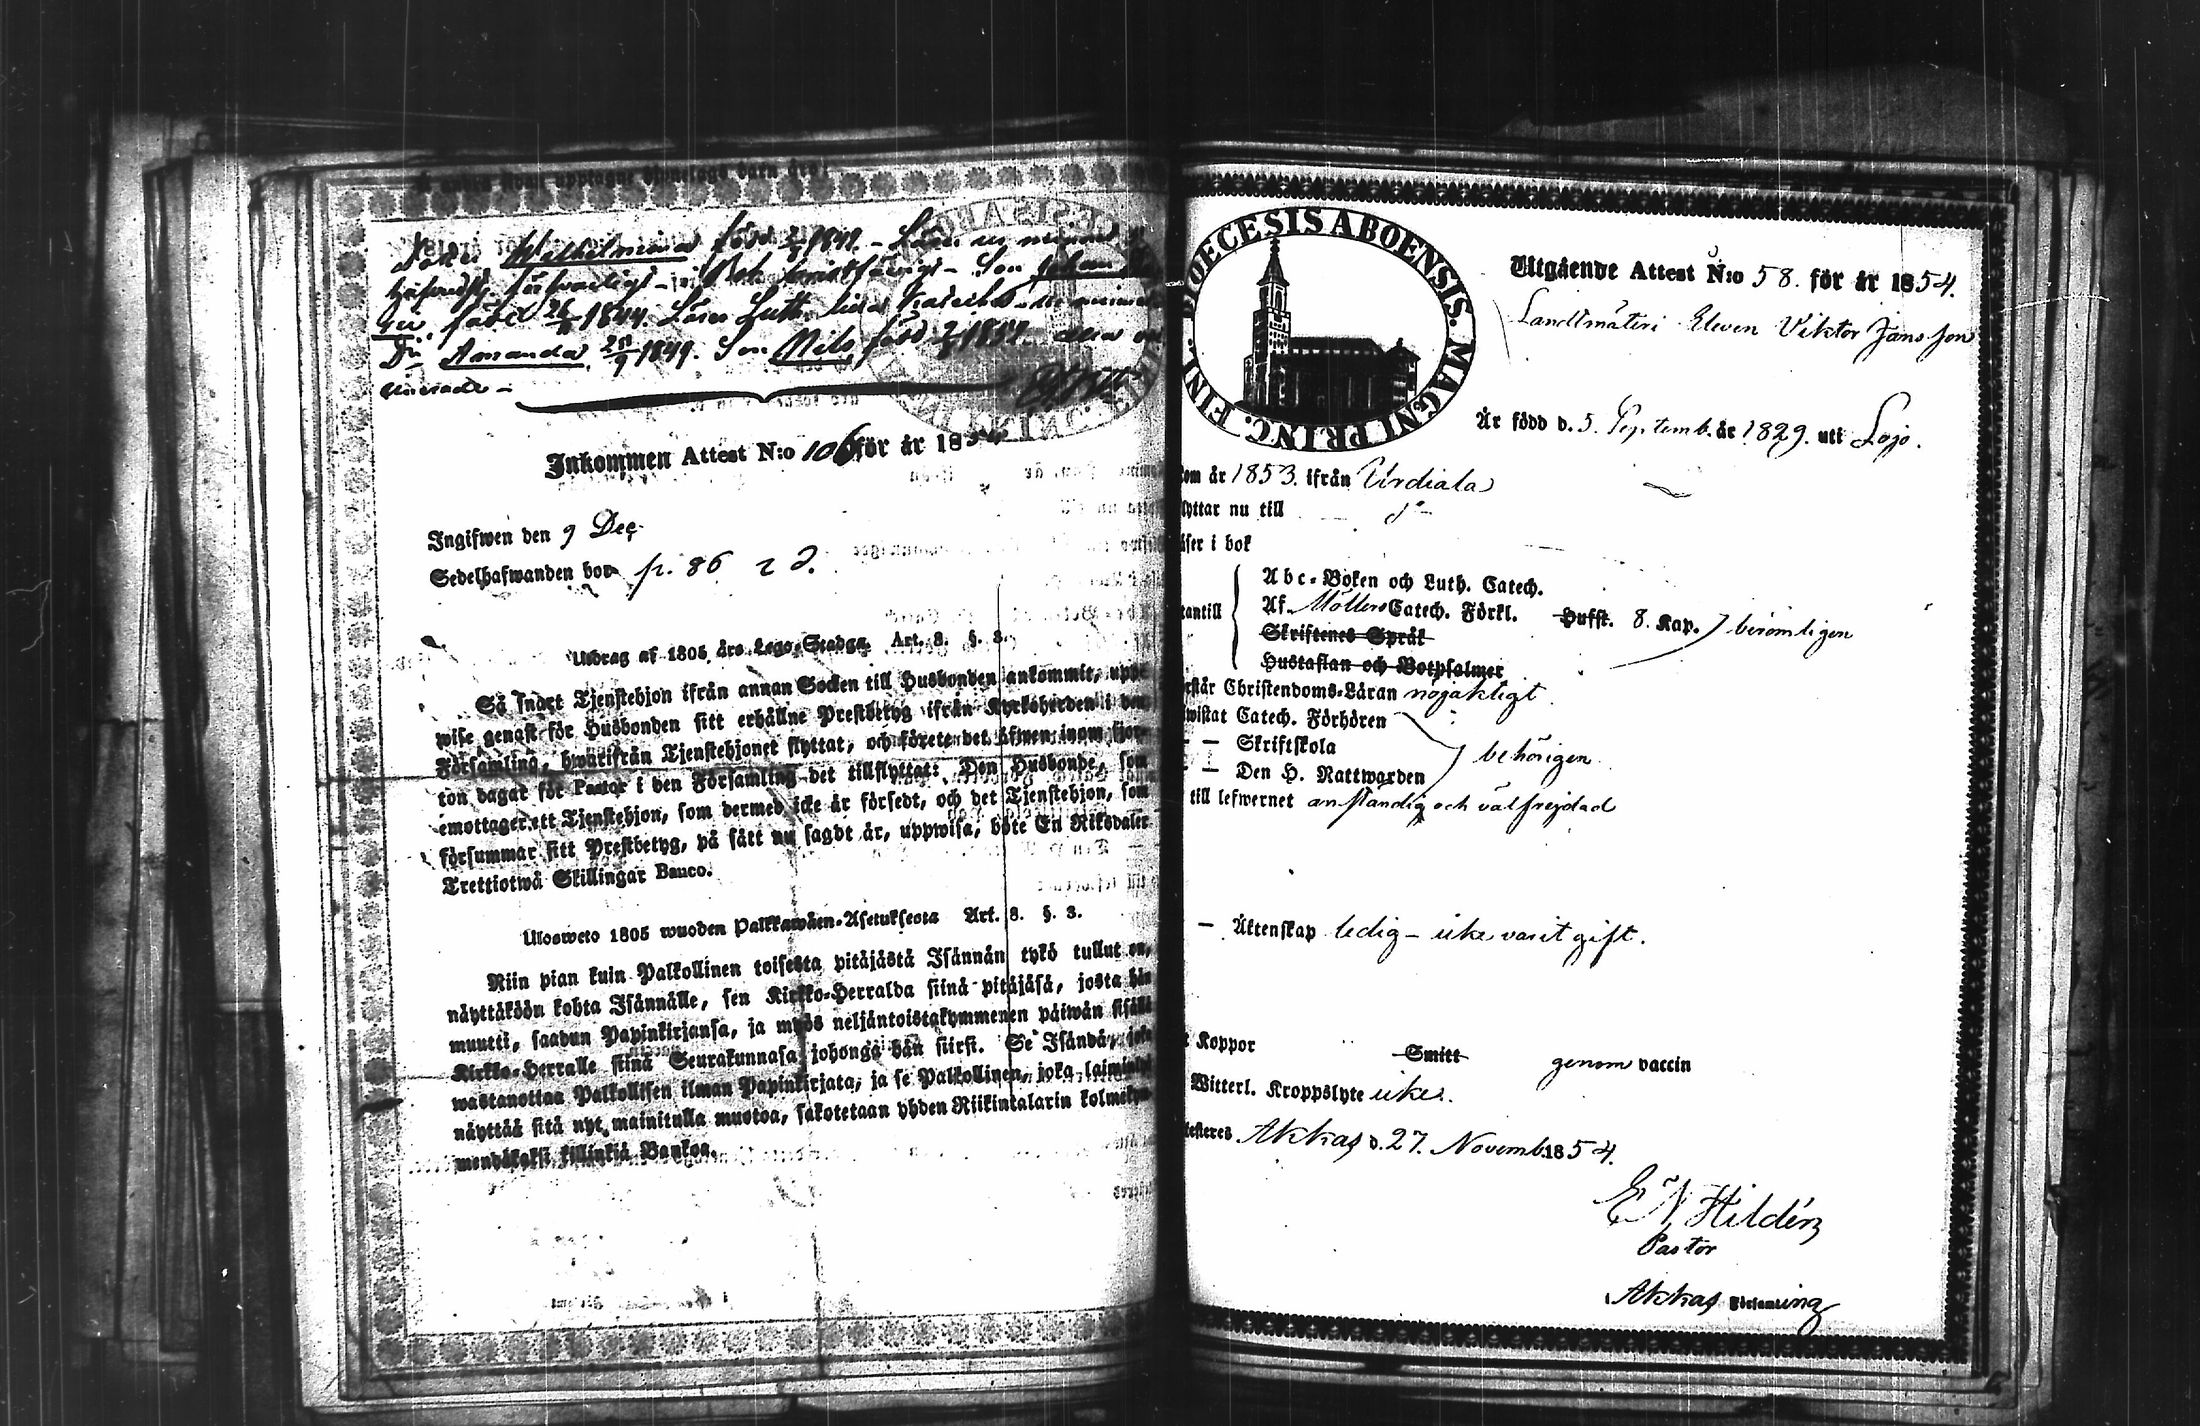 Wilhelmina född 1849. – Läser
född 26/ 1844. Läser Luth.
Amanda 1849. Son Nils född
Inkommen Attest N:o 106 för år 1854
Ingifwen den 9 Dec
Sedelhafwanden bor p. 86
Utdrag af 1805 års Lego-Stadga Art. 8. §. 3.
Så snart Tjenstehjon ifrån annan Socken till Husbonden ankommit, upp-
wise genast för Husbonden sitt erhållne Prestbetyg ifrån Kyrkoherden i den
Församling, hwarifrån Tjenstehjonet flyttat, och förete det äfwen inom fjor-
ton dagar för Pastor i den Församling det tillflyttat: Den Husbonde, som
emottager ett Tjenstehjon, som dermed icke är försedt, och det Tjenstehjon, som
försummar sitt Prestbetyg, på sätt nu sagdt är, uppwisa, böte En Riksdaler
Trettiotwå Skillingar Banco.
Ulosweto 1805 wuoden Palkkawäen-Asetuksesta Art. 8. §. 3.
Niin pian kuin Palkollinen toisesta pitäjästä Isännän tykö tullut on,
näyttäköön kohta Isännälle, sen Kirkko-Herralda siinä pitäjäsä, josta hän
muutti, saadun Papinkirjansa, ja myös neljäntoistakymmenen päiwän sisällä
Kirkko-Herralle siinä Seurakunnasa johonga hän siirsi. Se Isändä, joka
wastanottaa Palkollisen ilman Papinkirjata, ja se Palkollinen, joka laiminlyö
näyttää sitä nyt mainitulla muotoa, sakotetaan yhden Riikintalarin kolmekym-
mendäkaksi killinkiä Bankoa.
DIOECESIS ABOENSIS. MAGNI PRINC. FINL.
Utgående Attest N:o 58. för år 1854.
Landtmäteri Eleven Viktor Jansson
Är född d. 5. Septemb. år 1829. uti Lojo.
om år 1853. ifrån Urdiala
lyttar nu till
äser i bok
Abc-Boken och Luth. Catech.
tantill Af Möllers Catech. Förkl. Husst. 8. Kap. berömligen
Skriftenes Språk
Hustaflan och Botpsalmer
rstår Christendoms-Läran nöjaktigt
wistat Catech. Förhören
– Skriftskola behörigen
– Den H. Nattwarden
till lefwernet anständig och välfrejdad
– Äktenskap ledig – icke varit gift.
t Koppor Smitt genom vaccin
Witterl. Kroppslyte icke.
testeres Akkas d. 27. Novemb. 1854.
E N Hildén
Pastor
Akkas Församling